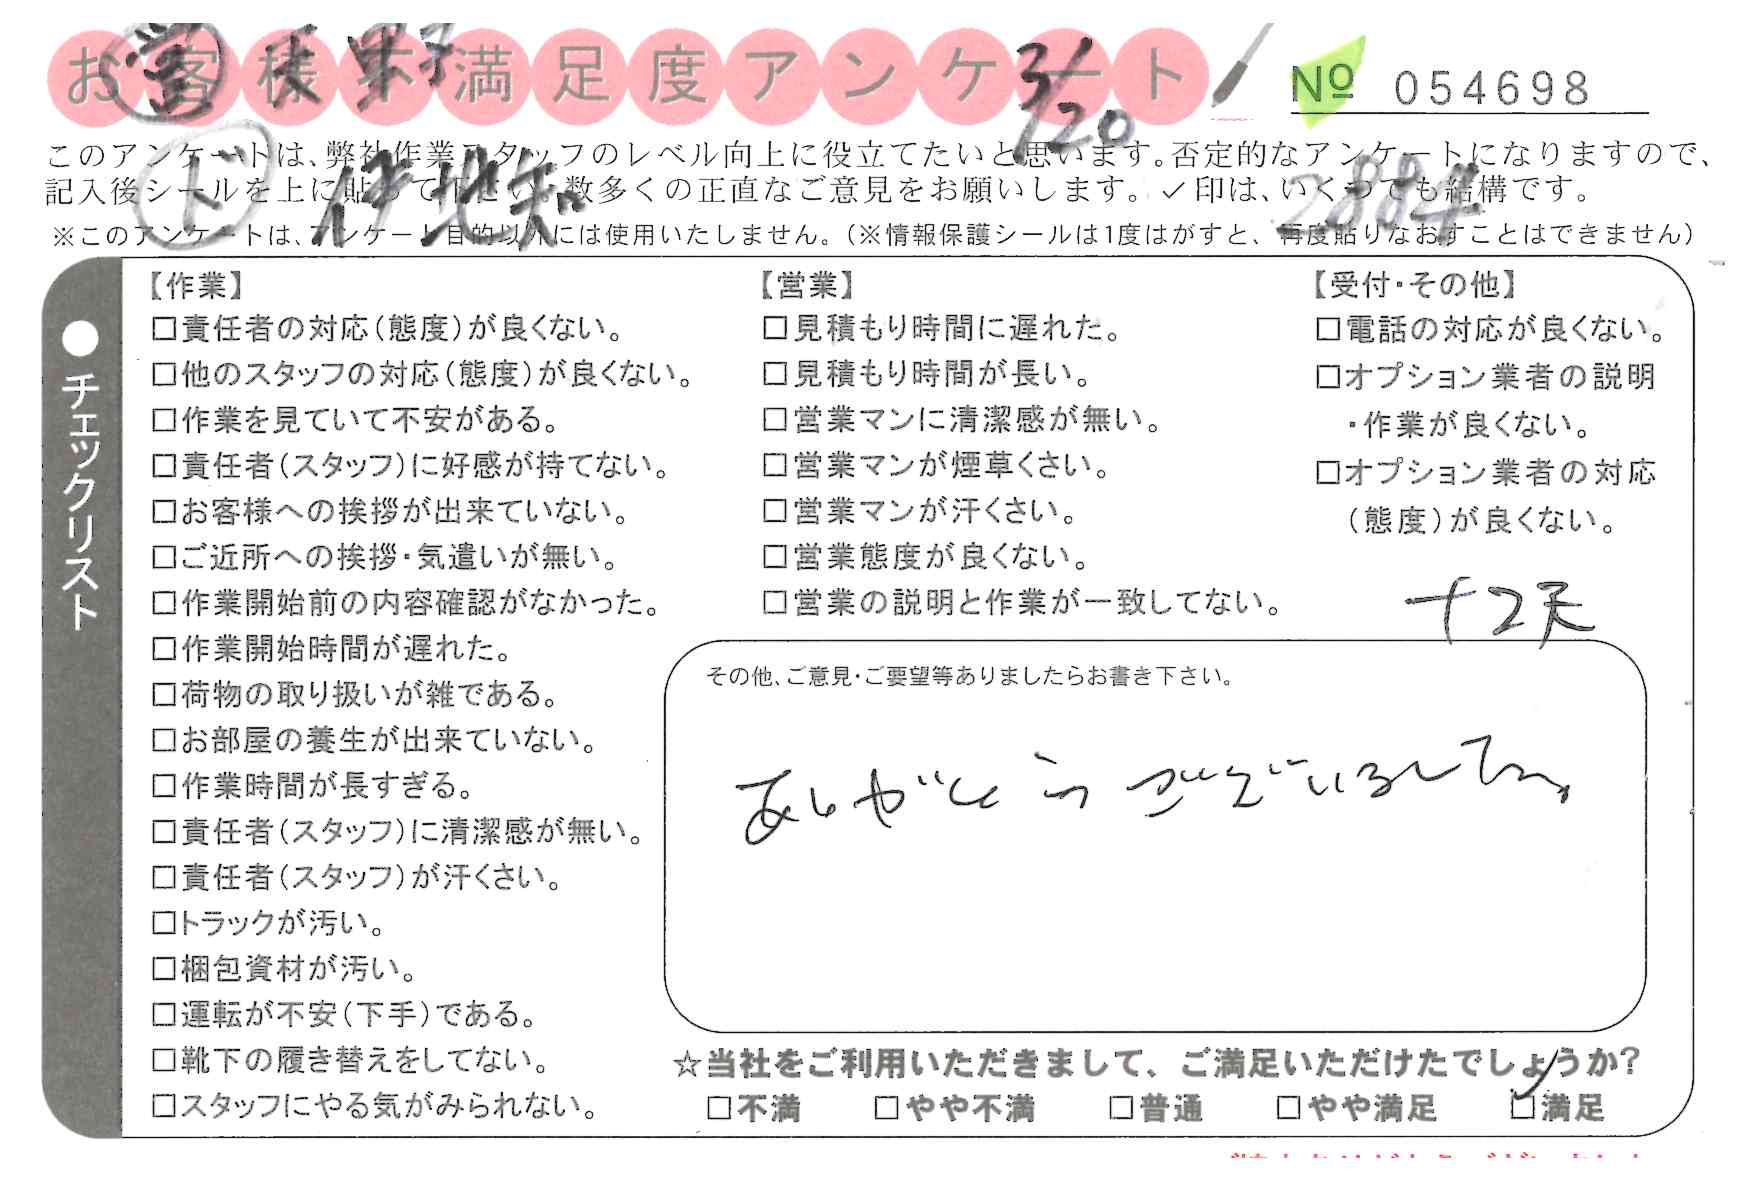 お客様不満足度アンケート
3/20
№ 054698
このアンケートは、弊社作業スタッフのレベル向上に役立てたいと思います。否定的なアンケートになりますので、
記入後シールを上に貼って下さい。数多くの正直なご意見をお願いします。✓印は、いくつでも結構です。
※このアンケートは、アンケート目的以外には使用いたしません。(※情報保護シールは1度はがすと、再度貼りなおすことはできません)
●チェックリスト
【作業】
□責任者の対応(態度)が良くない。
□他のスタッフの対応(態度)が良くない。
□作業を見ていて不安がある。
□責任者(スタッフ)に好感が持てない。
□お客様への挨拶が出来ていない。
□ご近所への挨拶・気遣いが無い。
□作業開始前の内容確認がなかった。
□作業開始時間が遅れた。
□荷物の取り扱いが雑である。
□お部屋の養生が出来ていない。
□作業時間が長すぎる。
□責任者(スタッフ)に清潔感が無い。
□責任者(スタッフ)が汗くさい。
□トラックが汚い。
□梱包資材が汚い。
□運転が不安(下手)である。
□靴下の履き替えをしてない。
□スタッフにやる気がみられない。
【営業】
□見積もり時間に遅れた。
□見積もり時間が長い。
□営業マンに清潔感が無い。
□営業マンが煙草くさい。
□営業マンが汗くさい。
□営業態度が良くない。
□営業の説明と作業が一致してない。
【受付・その他】
□電話の対応が良くない。
□オプション業者の説明
・作業が良くない。
□オプション業者の対応
(態度)が良くない。
その他、ご意見・ご要望等ありましたらお書き下さい。
ありがとうございました。
☆当社をご利用いただきまして、ご満足いただけたでしょうか?
□不満 □やや不満 □普通 □やや満足 ☑満足